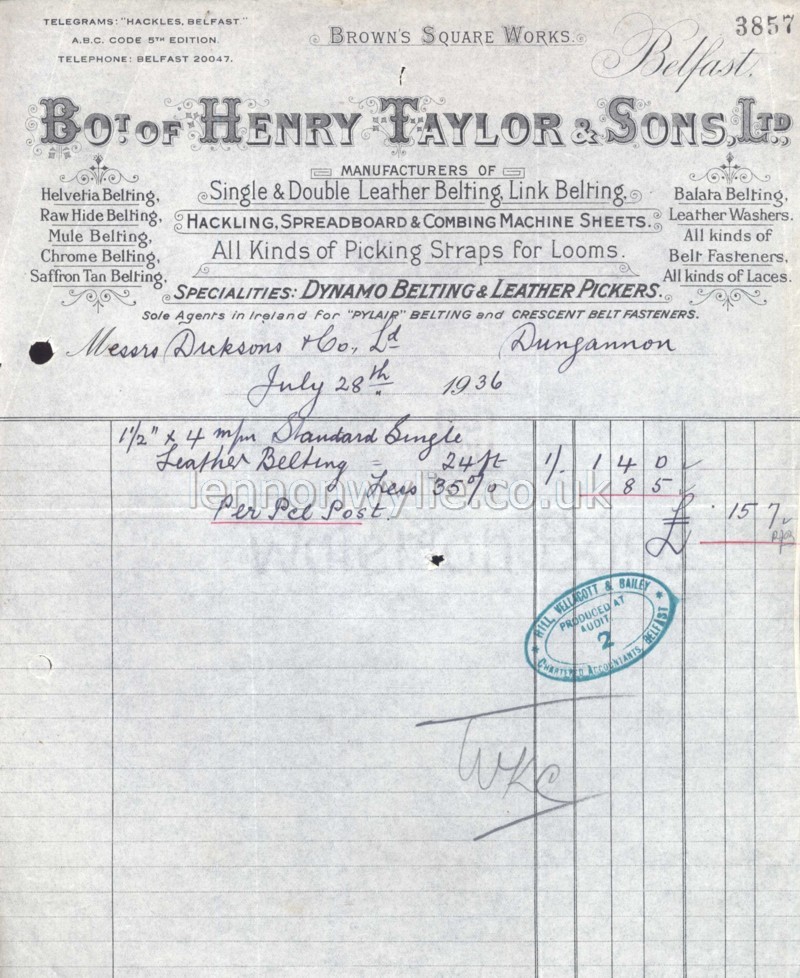 TELEGRAMS: "HACKLES, BELFAST."
A.B.C. CODE 5TH EDITION.
TELEPHONE: BELFAST 20047.
BROWN'S SQUARE WORKS.
3857
Belfast.
BOT. OF HENRY TAYLOR & SONS, LTD.,
MANUFACTURERS OF
Helvetia Belting,
Raw Hide Belting,
Mule Belting,
Chrome Belting,
Saffron Tan Belting,
Single & Double Leather Belting, Link Belting,
HACKLING, SPREADBOARD & COMBING MACHINE SHEETS.
All Kinds of Picking Straps for Looms.
SPECIALITIES: DYNAMO BELTING & LEATHER PICKERS.
Balata Belting,
Leather Washers.
All kinds of
Belt Fasteners,
All kinds of Laces.
Sole Agents in Ireland for "PYLAIR" BELTING and CRESCENT BELT FASTENERS.
Messrs Dicksons & Co., Ld Dungannon
July 28th 1936
1½" x 4 m/m Standard Single
Leather Belting = 24 ft 1/. 1 4 0
Less 35% 8 5
Per Pcl Post.
£ 15 7
lennonwylie.co.uk
HILL, VELLACOTT & BAILEY
PRODUCED AT
AUDIT
2
CHARTERED ACCOUNTANTS, BELFAST
WKC